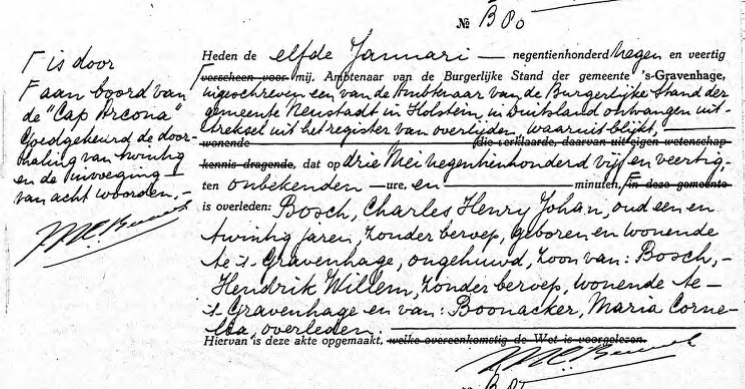 № B 80
Γ is door
Γ aan boord van
de "Cap Arcona"
Goedgekeurd de door-
haling van twintig
en de invoeging
van acht woorden.-
Heden de elfde Januari — negentienhonderd negen en veertig
verscheen voor mij, Ambtenaar van de Burgerlijke Stand der gemeente 's-Gravenhage,
ingeschreven een van de Ambtenaar van de Burgerlijke Stand der
gemeente Neustadt in Holstein, in Duitsland ontvangen uit-
treksel uit het register van overlijden, waaruit blijkt,
wonende die verklaarde, daarvan uit eigen wetenschap
kennis dragende, dat op drie Mei negentienhonderd vijf en veertig,
ten onbekenden — ure, en — minuten, Γ in deze gemeente
is overleden: Bosch, Charles Henry Johan, oud een en
twintig jaren, zonder beroep, geboren en wonende
te 's Gravenhage, ongehuwd, zoon van: Bosch,-
Hendrik Willem, zonder beroep, wonende te-
's Gravenhage en van: Boonacker, Maria Corne-
lia, overleden.
Hiervan is deze akte opgemaakt, welke overeenkomstig de Wet is voorgelezen.